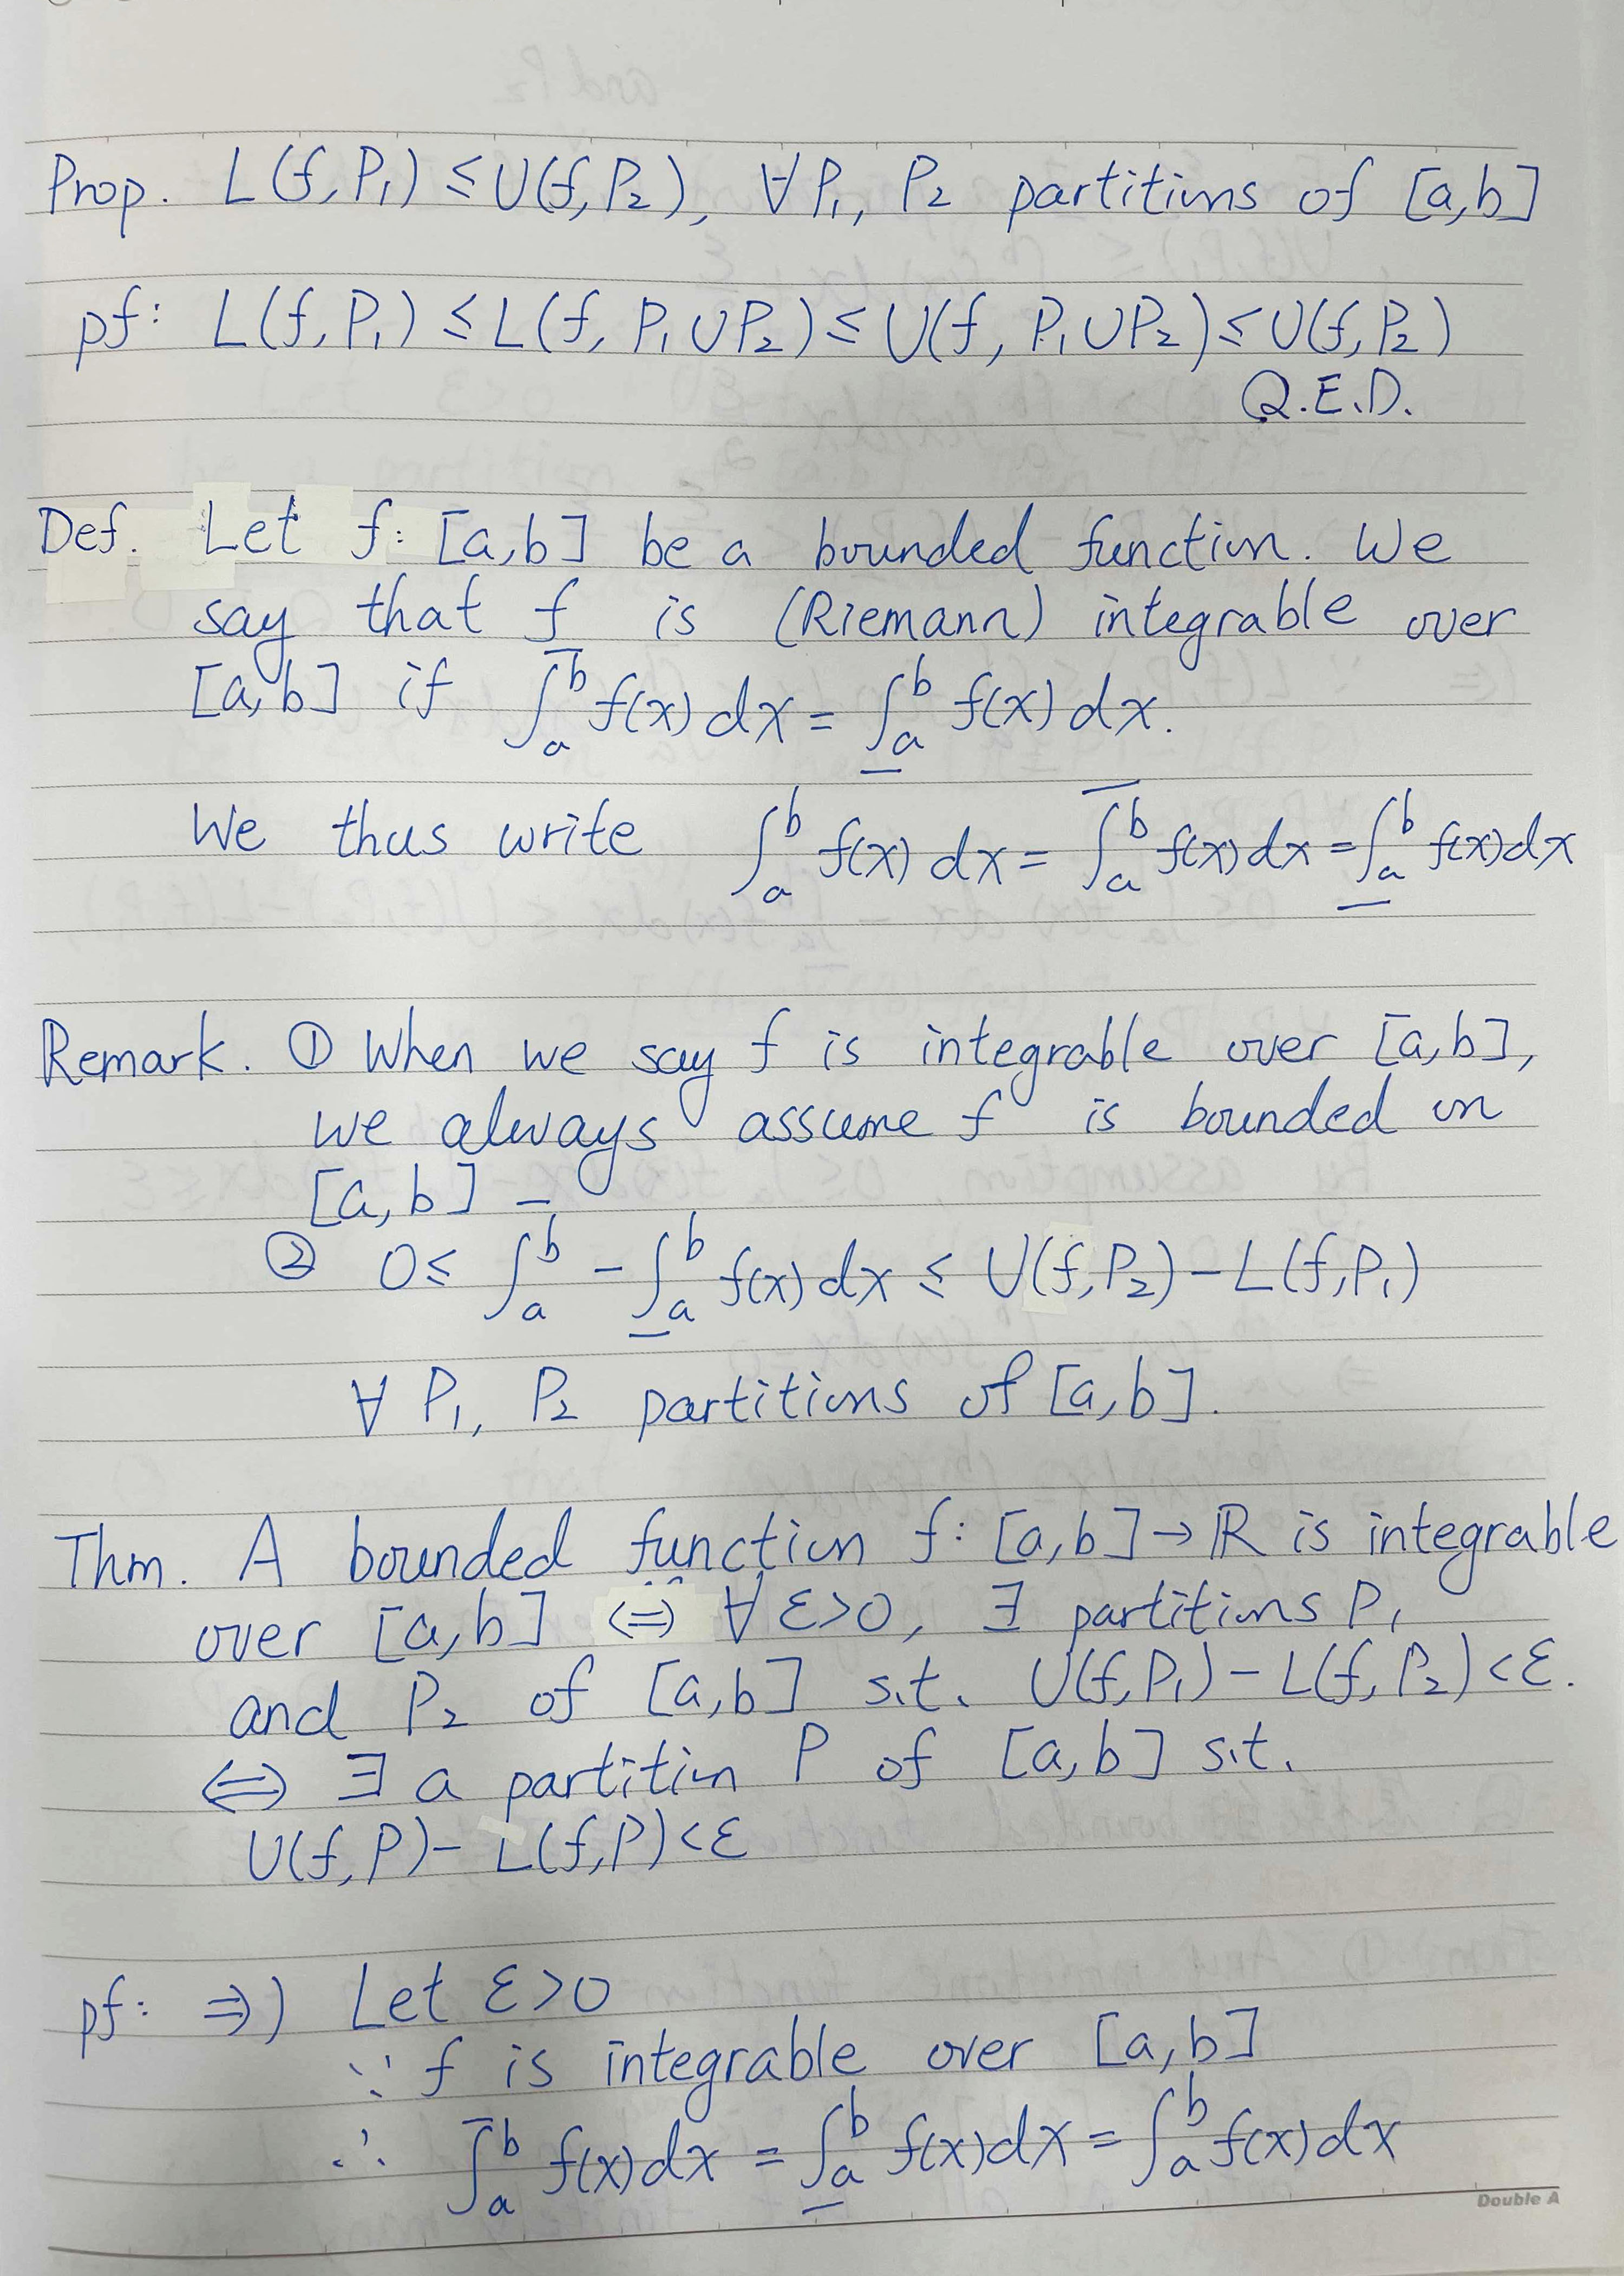 Prop. L(f, P₁) ≤ U(f, P₂), ∀ P₁, P₂ partitions of [a,b]
pf: L(f, P₁) ≤ L(f, P₁∪P₂) ≤ U(f, P₁∪P₂) ≤ U(f, P₂)
Q.E.D.
Def. Let f: [a,b] be a bounded function. We
say that f is (Riemann) integrable over
[a,b] if ∫̅ₐᵇ f(x) dx = ∫̲ₐᵇ f(x) dx.
We thus write ∫ₐᵇ f(x) dx = ∫̅ₐᵇ f(x) dx = ∫̲ₐᵇ f(x) dx
Remark. ① When we say f is integrable over [a,b],
we always assume f is bounded on
[a,b]
② 0 ≤ ∫̅ₐᵇ - ∫̲ₐᵇ f(x) dx ≤ U(f, P₂) - L(f, P₁)
∀ P₁, P₂ partitions of [a,b].
Thm. A bounded function f: [a,b] → ℝ is integrable
over [a,b] ⇔ ∀ ε>0, ∃ partitions P₁
and P₂ of [a,b] s.t. U(f, P₁) - L(f, P₂) < ε.
⇔ ∃ a partition P of [a,b] s.t.
U(f, P) - L(f, P) < ε
pf: ⇒) Let ε>0
∵ f is integrable over [a,b]
∴ ∫̅ₐᵇ f(x) dx = ∫̲ₐᵇ f(x) dx = ∫ₐᵇ f(x) dx
Double A